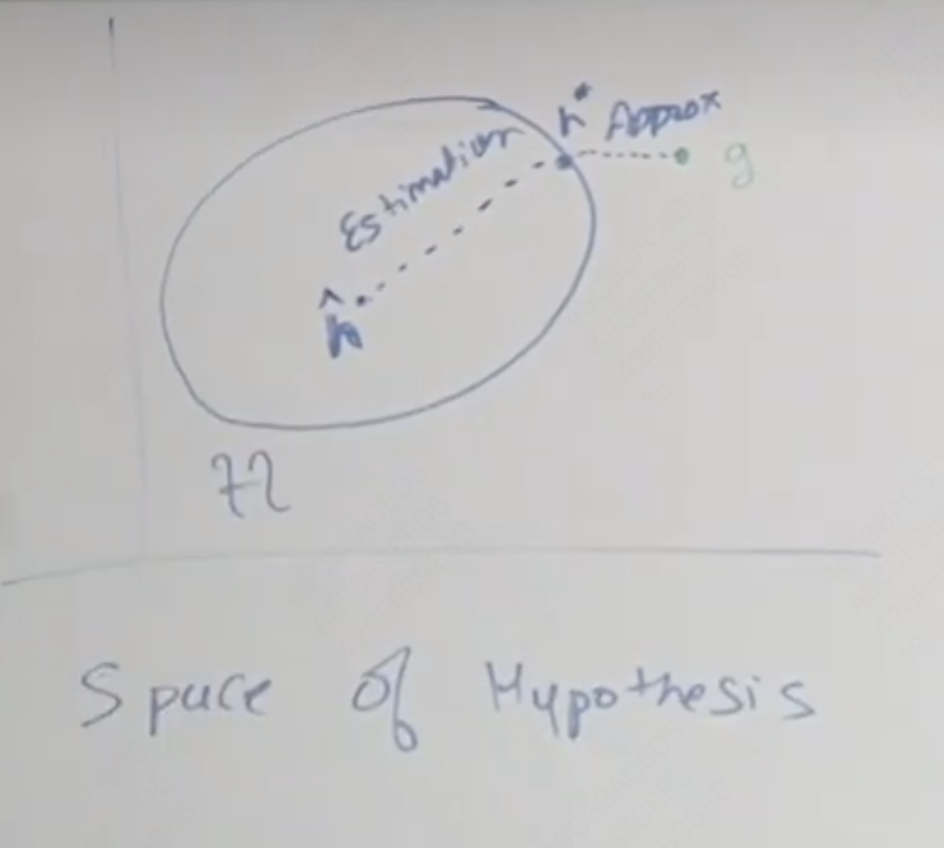 h* Approx
Estimation
g
ĥ
H
Space of Hypothesis